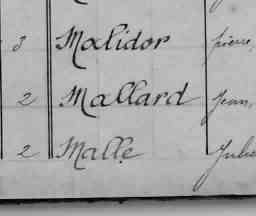 3 Malidor pierre,
2 Mallard Jean,
2 Malle Julie